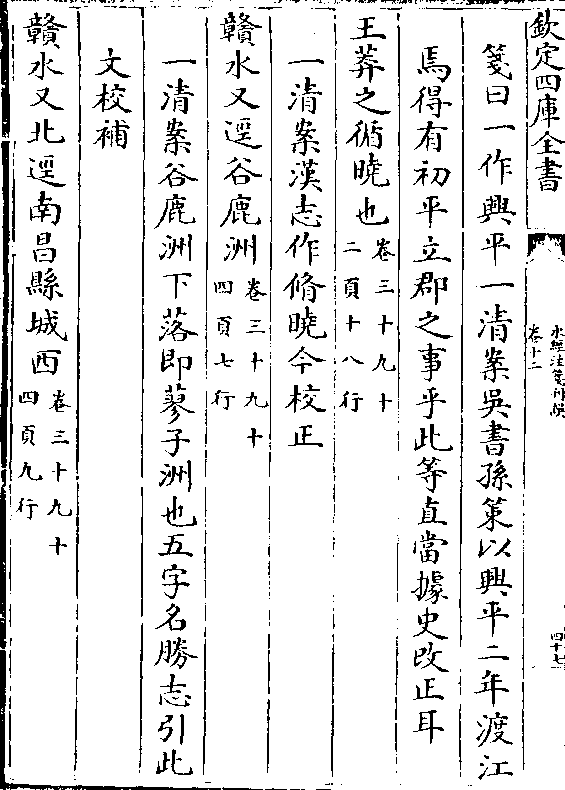 欽定四庫全書
水經注箋刊誤
卷十二
四十七
箋曰一作興平一清案吳書孫策以興平二年渡江
焉得有初平立郡之事乎此等直當據史改正耳
王莽之循曉也卷三十九十
二頁十八行
一清案漢志作脩曉今校正
贛水又逕谷鹿洲卷三十九十
四頁七行
一清案谷鹿洲下落即蓼子洲也五字名勝志引此
文校補
贛水又北逕南昌縣城西卷三十九十
四頁九行